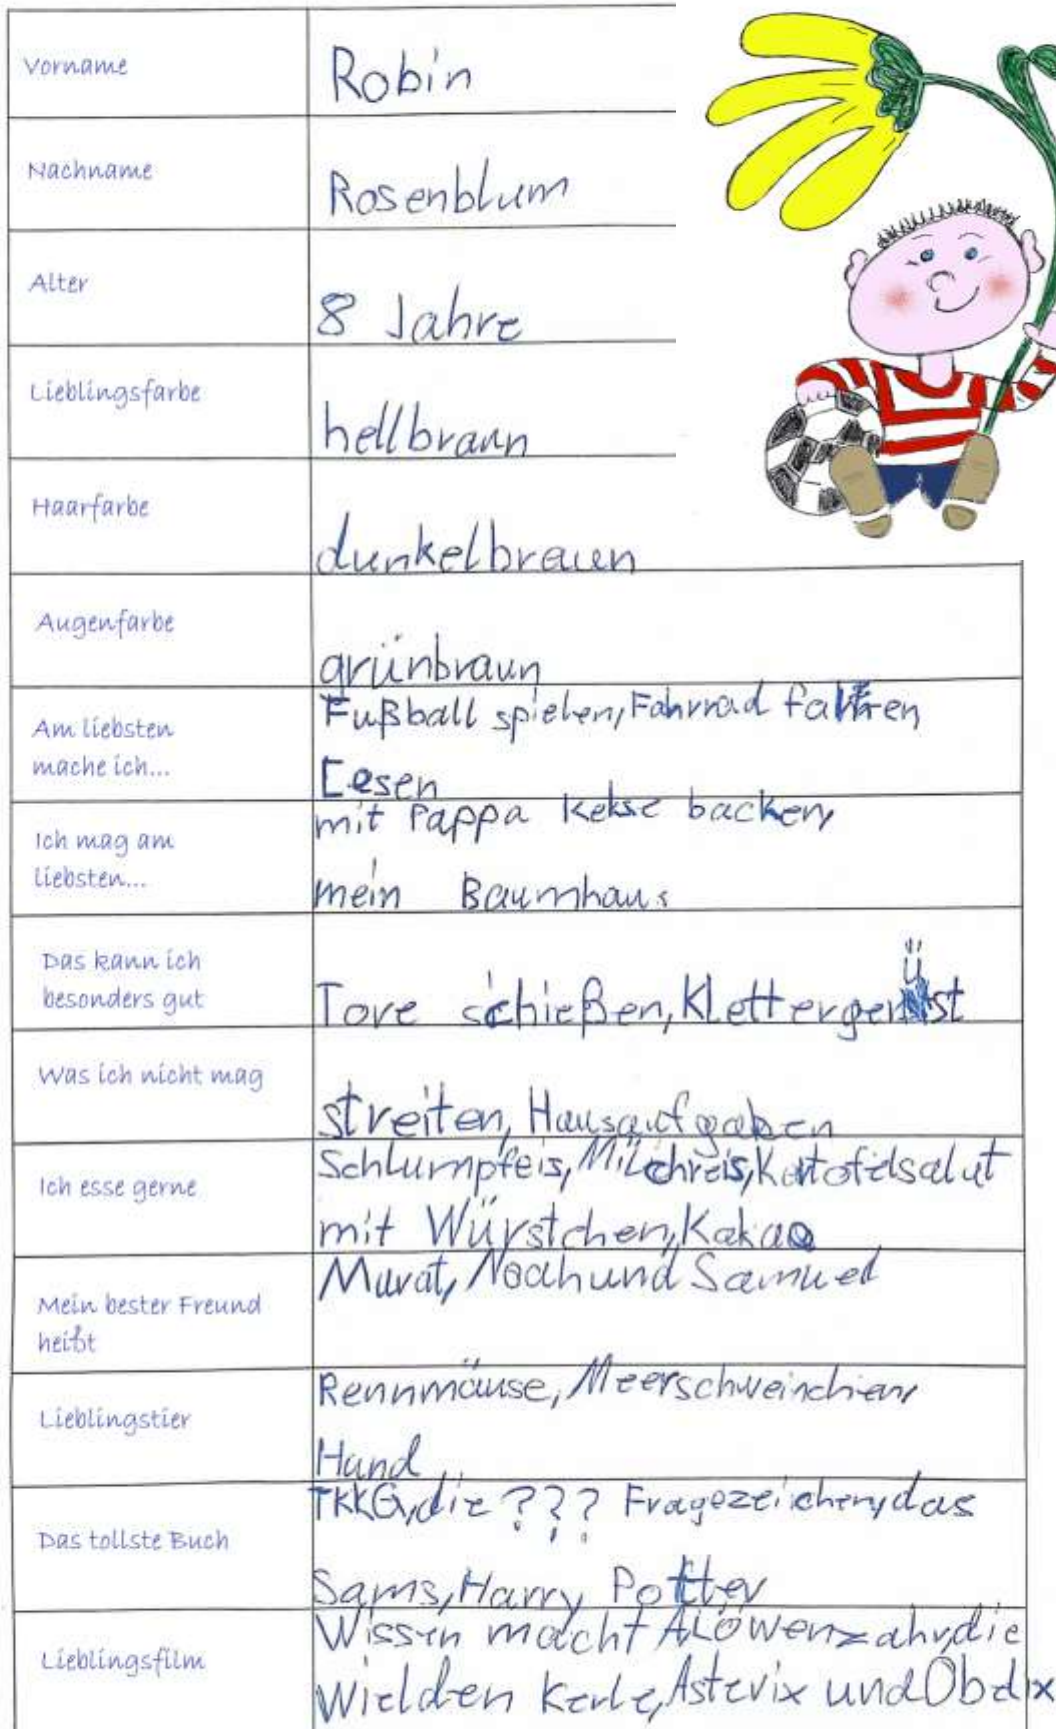 Vorname
Robin
Nachname
Rosenblum
Alter
8 Jahre
Lieblingsfarbe
hellbraun
Haarfarbe
dunkelbraun
Augenfarbe
grünbraun
Am liebsten
mache ich...
Fußball spielen, Fahrrad fahren
Lesen
Ich mag am
liebsten...
mit Pappa Kekse backen,
mein Baumhaus
Das kann ich
besonders gut
Tore schießen, Klettergerüst
Was ich nicht mag
streiten, Hausaufgaben
Ich esse gerne
Schlumpfeis, Milchreis, Kartofelsalat
mit Würstchen, Kakao
Mein bester Freund
heißt
Murat, Noah und Samuel
Lieblingstier
Rennmäuse, Meerschweinchen,
Hund
Das tollste Buch
TKKG, die ??? Fragezeichen, das
Sams, Harry Potter
Lieblingsfilm
Wissen macht A, Löwenzahn, die
Wielden Kerle, Asterix und Obelix